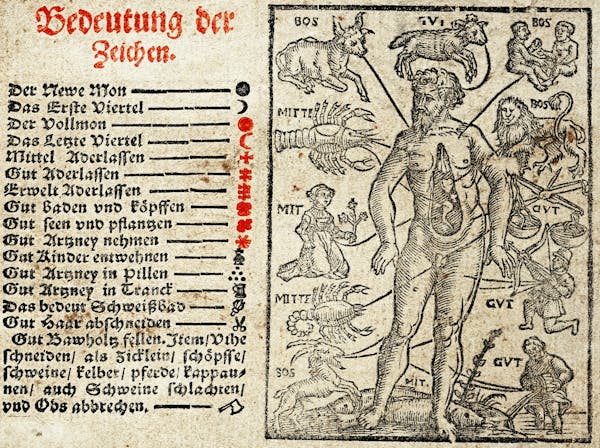 Bedeutung der
Zeichen.
Der Newe Mon
Das Erste Viertel
Der Vollmon
Das Letzte Viertel
Mittel Aderlassen
Gut Aderlassen
Erwelt Aderlassen
Gut baden vnd köpffen
Gut seen vnd pflantzen
Gut Artzney nehmen
Gut Kinder entwehnen
Gut Artzney in Pillen
Gut Artzney in Tranck
Das bedeut Schweißbad
Gut Haar abschneiden
Gut Bawholtz fellen. Item/Vihe
schneiden/ als zicklein/ schöpsse/
schweine/ kelber/ pferde/ kappau-
nen/ auch Schweine schlachten/
vnd Obs abbrechen.
BOS
GVI
BOS
MITTE
BOS
MIT
GVT
MITTE
GVT
BOS
MIT.
GVT